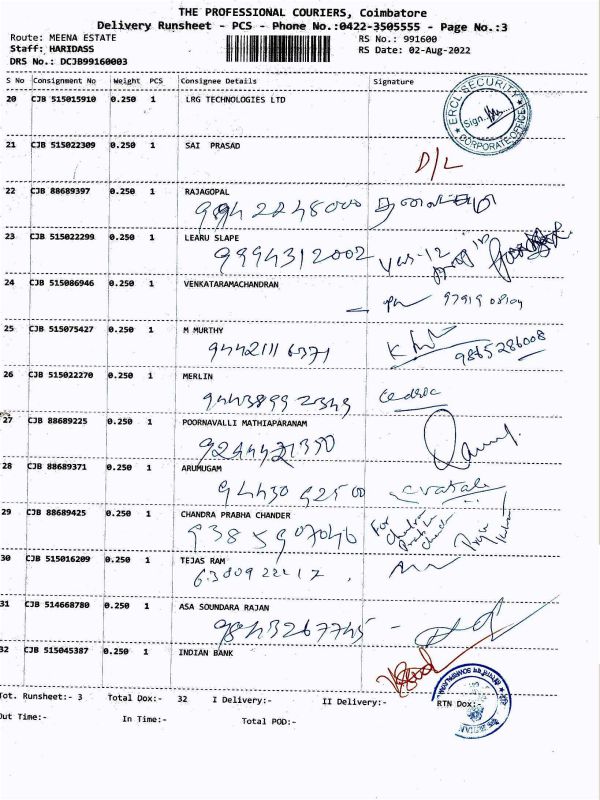 THE PROFESSIONAL COURIERS, Coimbatore
Delivery Runsheet - PCS - Phone No.:0422-3505555 - Page No.:3
Route: MEENA ESTATE RS No.: 991600
Staff: HARIDASS RS Date: 02-Aug-2022
DRS No.: DCJB99160003
S No Consignment No Weight PCS Consignee Details Signature
20 CJB 515015910 0.250 1 LRG TECHNOLOGIES LTD
ERCL SECURITY
Sign
CORPORATE OFFICE
21 CJB 515022309 0.250 1 SAI PRASAD
D/L
22 CJB 88689397 0.250 1 RAJAGOPAL
23 CJB 515022299 0.250 1 LEARU SLAPE
9994312002
24 CJB 515086946 0.250 1 VENKATARAMACHANDRAN
97919 08104
25 CJB 515075427 0.250 1 M MURTHY
9865286008
26 CJB 515022270 0.250 1 MERLIN
Cedric
27 CJB 88689225 0.250 1 POORNAVALLI MATHIAPARANAM
28 CJB 88689371 0.250 1 ARUMUGAM
94430 92500
29 CJB 88689425 0.250 1 CHANDRA PRABHA CHANDER
9385907046 For Chandra
30 CJB 515016209 0.250 1 TEJAS RAM
31 CJB 514668780 0.250 1 ASA SOUNDARA RAJAN
9843267745
32 CJB 515045387 0.250 1 INDIAN BANK
Tot. Runsheet:- 3 Total Dox:- 32 I Delivery:- II Delivery:- RTN Dox:-
Out Time:- In Time:- Total POD:-